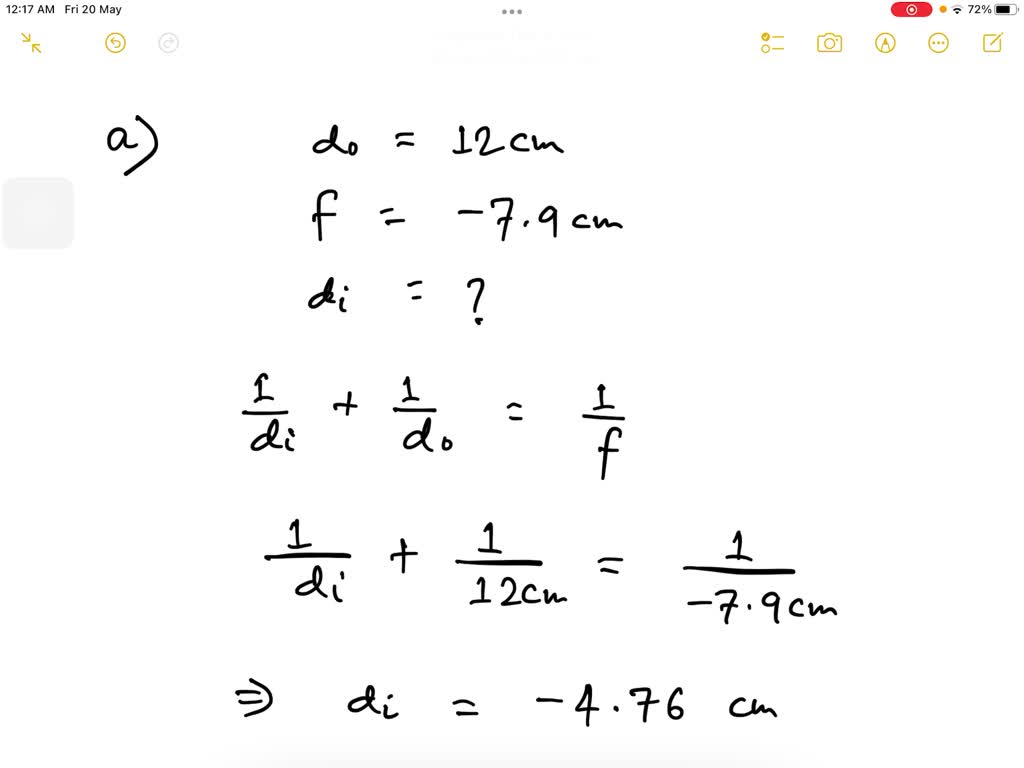 12:17 AM Fri 20 May
72%
a) d₀ = 12 cm
f = -7.9 cm
di = ?
1/di + 1/d₀ = 1/f
1/di + 1/12cm = 1/-7.9cm
⇒ di = -4.76 cm